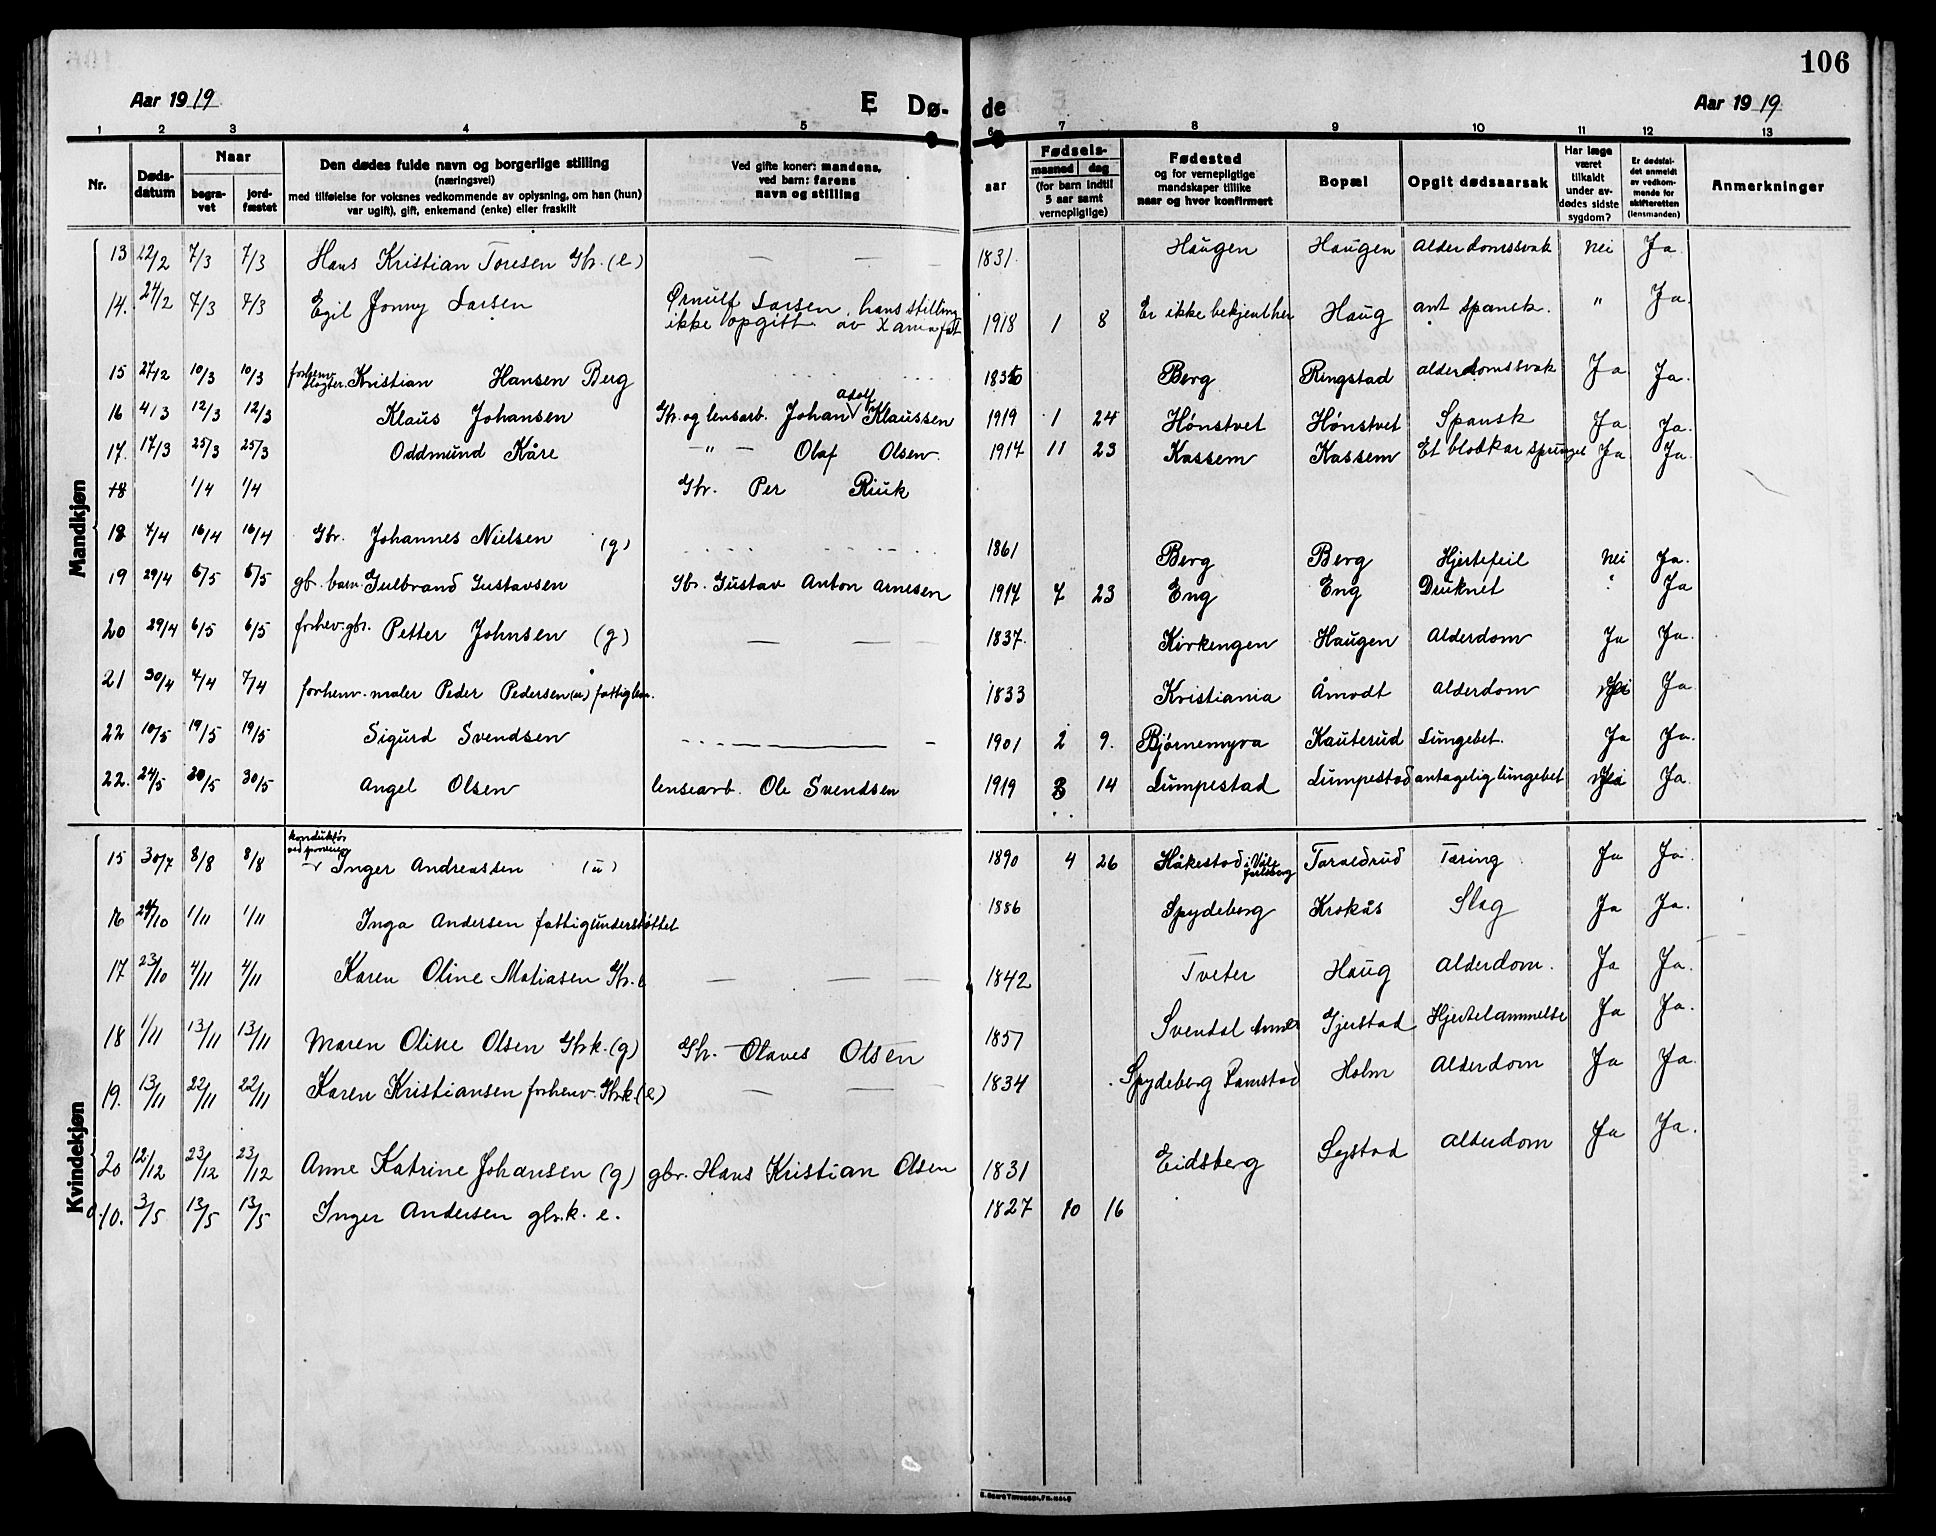 106
Aar 1919 E Dø- de Aar 1919
1 2 3 4 5 6 7 8 9 10 11 12 13
Nr. Døds-datum Naar begra-vet jord-fæstet Den dødes fulde navn og borgerlige stilling (næringsvei) med tilføielse for voksnes vedkommende av oplysning, om han (hun) var ugift), gift, enkemand (enke) eller fraskilt Ved gifte koner: mandens, ved barn: farens navn og stilling aar Fødsels- maaned dag (for barn indtil 5 aar samt vernepligtige) Fødested og for vernepligtige mandskaper tillike naar og hvor konfirmert Bopæl Opgit dødsaarsak Har læge været tilkaldt under av-dødes sidste sygdom? Er dødsfal-det anmeldt av vedkom-mende for skifteretten (lensmanden) Anmerkninger
Mandkjøn
13 22/2 7/3 7/3 Hans Kristian Toresen Gbr. (e) — — — 1831. Haugen Haugen Alderdomssvak Nei Ja.
14. 24/2 7/3 7/3 Egil Jonny Larsen Ørnulf Larsen, hans stilling
ikke opgitt av 1918 1 8 Er ikke bekjent her Haug ant spansk. " Ja.
15 27/2 10/3 10/3 forhenv. slagter. Kristian Hansen Berg Berg Ringstad alderdomssvak Ja Ja.
16 4/3 12/3 12/3 Klaus Johansen Gbr. og lensarb. Johan Adolf Klaussen 1919 1 24 Hønstvet Hønstvet Spansk Ja Ja.
17. 17/3 25/3 25/3 Oddmund Kåre — " — Olaf Olsen. 1917 11 23 Kassem Kassem Et blodkar sprunget Ja Ja.
18 1/4 1/4 Gbr. Per Riuk
18 7/4 16/4 16/4 Gbr. Johannes Nielsen (g) 1861 Berg Berg Hjertefeil Nei Ja.
19 29/4 6/5 6/5 gb. barn. Gulbrand Gustavsen Gbr. Gustav Anton Arnesen 1917 7 23 Eng Eng Druknet " Ja
20 29/4 6/5 6/5 forhenv. gbr. Petter Johnsen (g) — — — 1837. Kirkengen Haugen Alderdom Ja Ja.
21 30/4 7/4 7/4 forhenv. maler Peder Pedersen (u) fattiglem. 1833 Kristiania Åmodt Alderdom Ja
22 10/5 19/5 19/5 Sigurd Svendsen 1901 2 9. Bjørnemyra Kauterud Lungebet. Ja Ja.
22. 24/5 30/5 30/5 Angel Olsen lensearb. Ole Svendsen 1919 3 14 Lumpestad Lumpestad antagelig lungebet Ja.
Kvindekjøn
15 30/7 8/8 8/8 konduktør ved sporveien Inger Andreassen (u) 1890 4 26 Håkestad i Våle Jarlsberg Taraldrud Tæring Ja Ja.
16 1/11 1/11 Inga Andersen fattigunderstøttet 1886 Spydeberg Krokås Slag Ja Ja.
17 23/10 4/11 4/11 Karen Oline Matiasen Gbr. e — — — 1842 Tveter Haug Alderdom. Ja Ja.
18 1/11 13/11 13/11 Maren Oline Olsen Gbrk. (g) Gbr. Olaves Olsen 1857 Svendal Gjerstad Hjertelammelse Ja Ja.
19. 13/11 22/11 22/11 Karen Kristiansen forhenv. Gbrk. (e) — — 1834 Spydeberg Ramstad Holm Alderdom Ja Ja.
20 12/12 23/12 23/12 Anne Katrine Johansen (g) gbr. Hans Kristian Olsen 1831 Eidsberg Systad Alderdom Ja Ja.
10. 3/5 13/5 13/5 Inger Andersen gbr.k. e. 1827 10 16